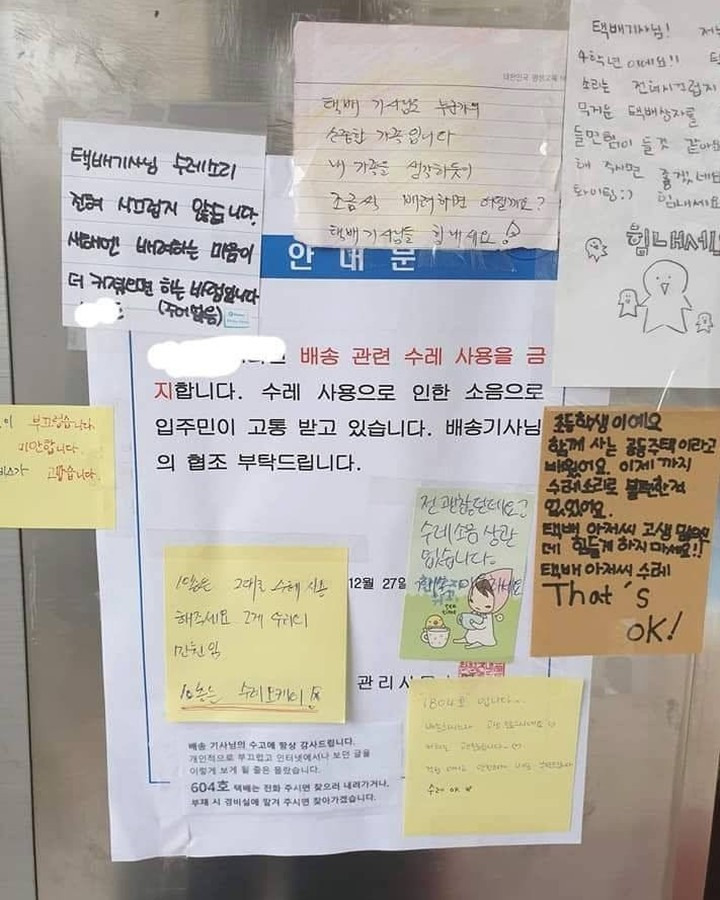 택배기사님!
4학년이에요!!
소리는 전혀 시끄럽지
무거운 택배상자를
들면 힘이 들것 같아요
해 주시면 좋겠네요
화이팅:) 힘내세요
힘내세요
택배 기사님도 누군가의
소중한 가족입니다
내 가족을 생각하듯이
조금씩 배려하면 어떨까요?
택배 기사님들 힘내세요
택배기사님 수레소리
전혀 시끄럽지 않습니다.
새해엔 배려하는 마음이
더 커졌으면 하는 바램입니다
(주어없음)
안 내 문
배송 관련 수레 사용을 금
지합니다. 수레 사용으로 인한 소음으로
입주민이 고통 받고 있습니다. 배송기사님
의 협조 부탁드립니다.
부끄럽습니다.
미안합니다.
고맙습니다.
초등학생이에요
함께 사는 공동주택이라고
배웠어요. 이제까지
수레소리로 불편한적
없었어요.
택배 아저씨 고생 많으
데 힘들게 하지 마세요!!
택배 아저씨 수레
That's
OK!
전 괜찮던데요?
수레소음 상관
없습니다.
12월 27일
그대로 수레 사용
해주세요 그게 우리의
관리사무
1804호 입니다.
수레 OK
배송 기사님의 수고에 항상 감사드립니다.
개인적으로 부끄럽고 인터넷에서나 보던 글을
이렇게 보게 될 줄은 몰랐습니다.
604호 택배는 전화 주시면 찾으러 내려가거나,
부재 시 경비실에 맡겨 주시면 찾아가겠습니다.